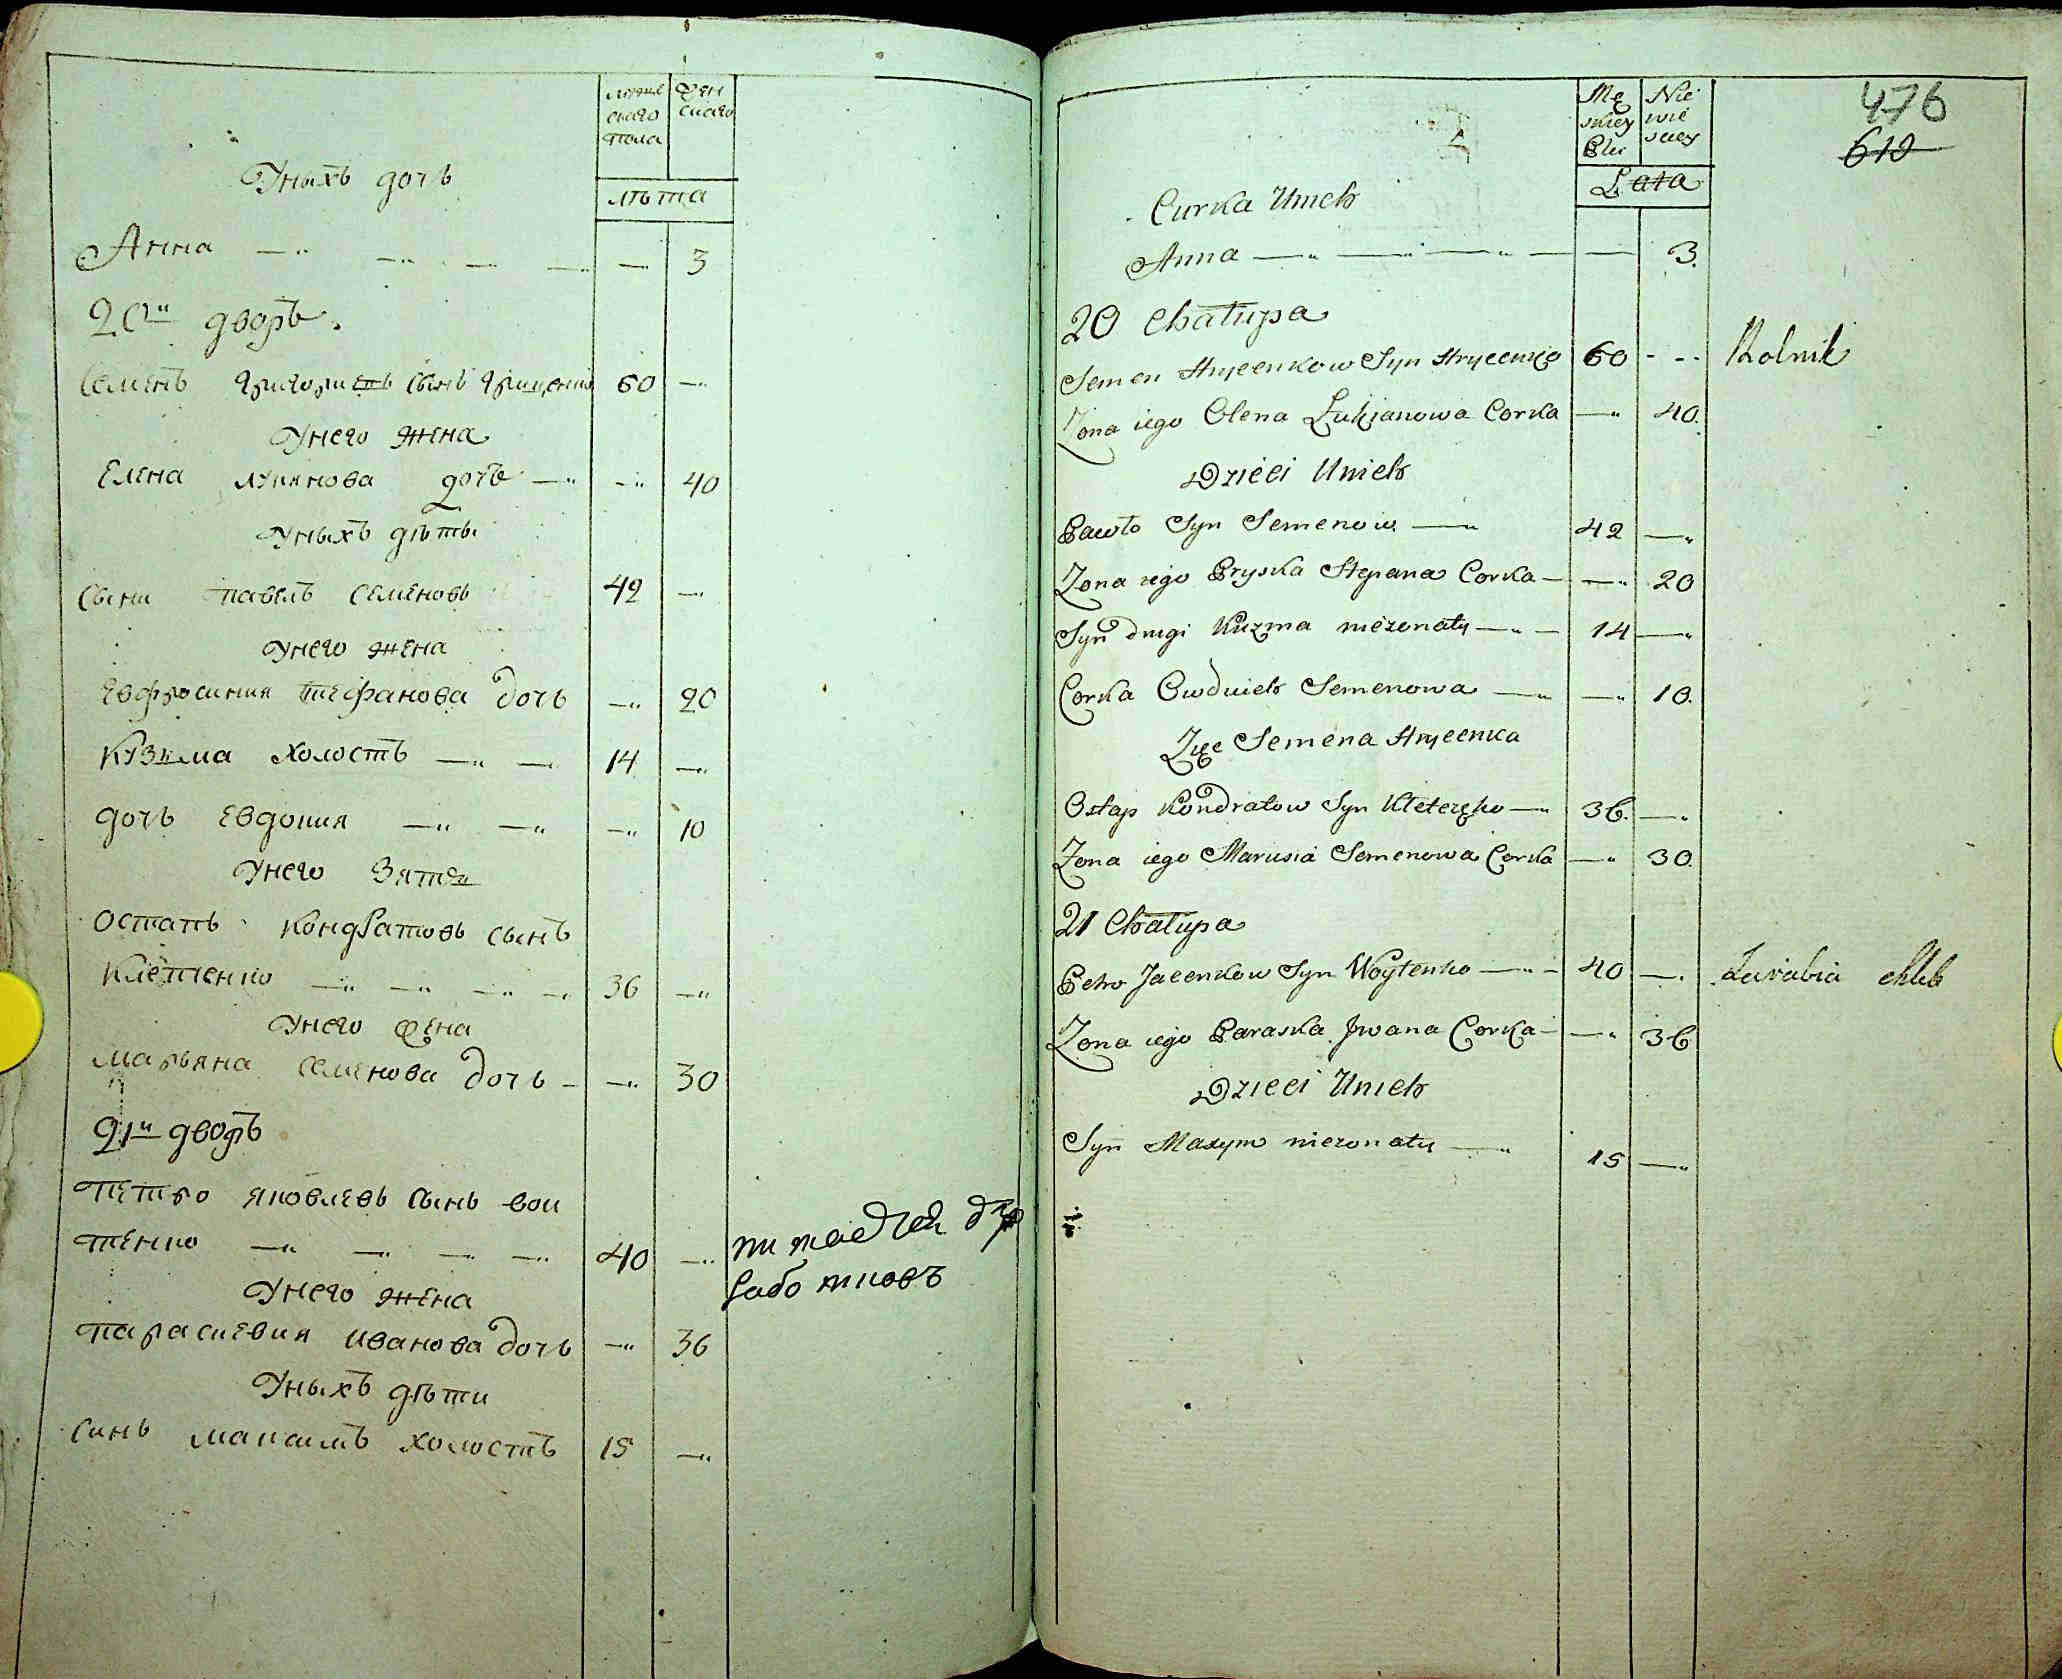 мужескаго пола
женскаго
лѣта
Уныхъ дочь
Анна — — — — — 3
20й дворъ.
Семенъ Григориевъ сынъ Гриценко 60 —
Унего жена
Елена лукянова дочь — — 40
Уныхъ дѣти
сыни павелъ Семеновъ 42 —
Унего жена
Евфросиния стефанова дочь — 20
Кузьма холостъ — — 14 —
дочь Евдокия — — — 10
Унего Зять
остапъ кондратовъ сынъ
Клетченко — — — — 36 —
Унего жена
марьяна семенова дочь — — 30
21й дворъ
петро яковлевъ сынъ вои
тенко — — — — 40 —
Унего жена
параскевия иванова дочь — 36
Уныхъ дѣти
синъ максимъ холостъ 15 —
Męskiey Płci
Niewieściey
Lata
476
610
Curka Unich
Anna — — — — — 3.
20 Chałupa
Semen Hrycenkow Syn Hrycenko 60 - - - Rolnik
Zona iego Olena Lukjanowa Corka — 40.
Dzieci Unich
Pawło Syn Semenow — 42 —
Zona iego Pryska Stepana Corka — — 20
Syn drugi Kuzma nieżonaty — — 14 —
Corka Owdwich Semenowa — — 10.
Zięć Semena Hrycenka
Ostap Kondratow Syn Kletczko — 36. —
Zona iego Marusia Semenowa Corka — 30.
21 Chałupa
Petro Jacenkow Syn Woytenko — — 40 — Zarabia chleb
Zona iego Paraska Jwana Corka — — 36
Dzieci Unich
Syn Maxym niezonaty — 15 —